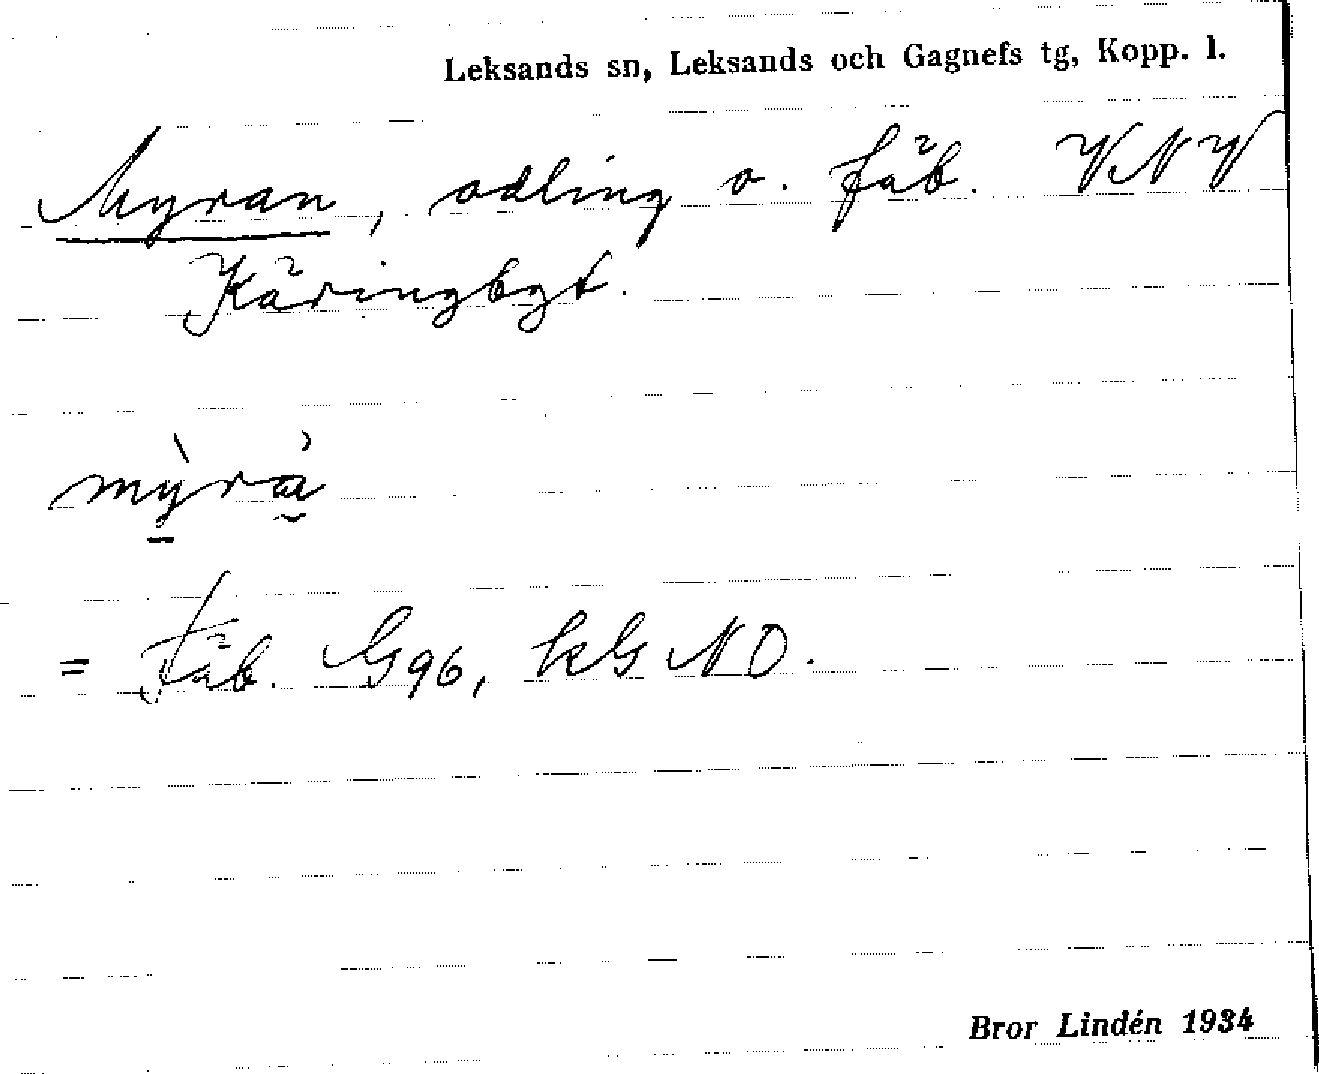 Leksands sn, Leksands och Gagnefs tg, Kopp. l.
Myran, odling o. fäb. VNV
Käringbgt.
mỳrà
= Fäb. G96, kG NO.
Bror Lindén 1934